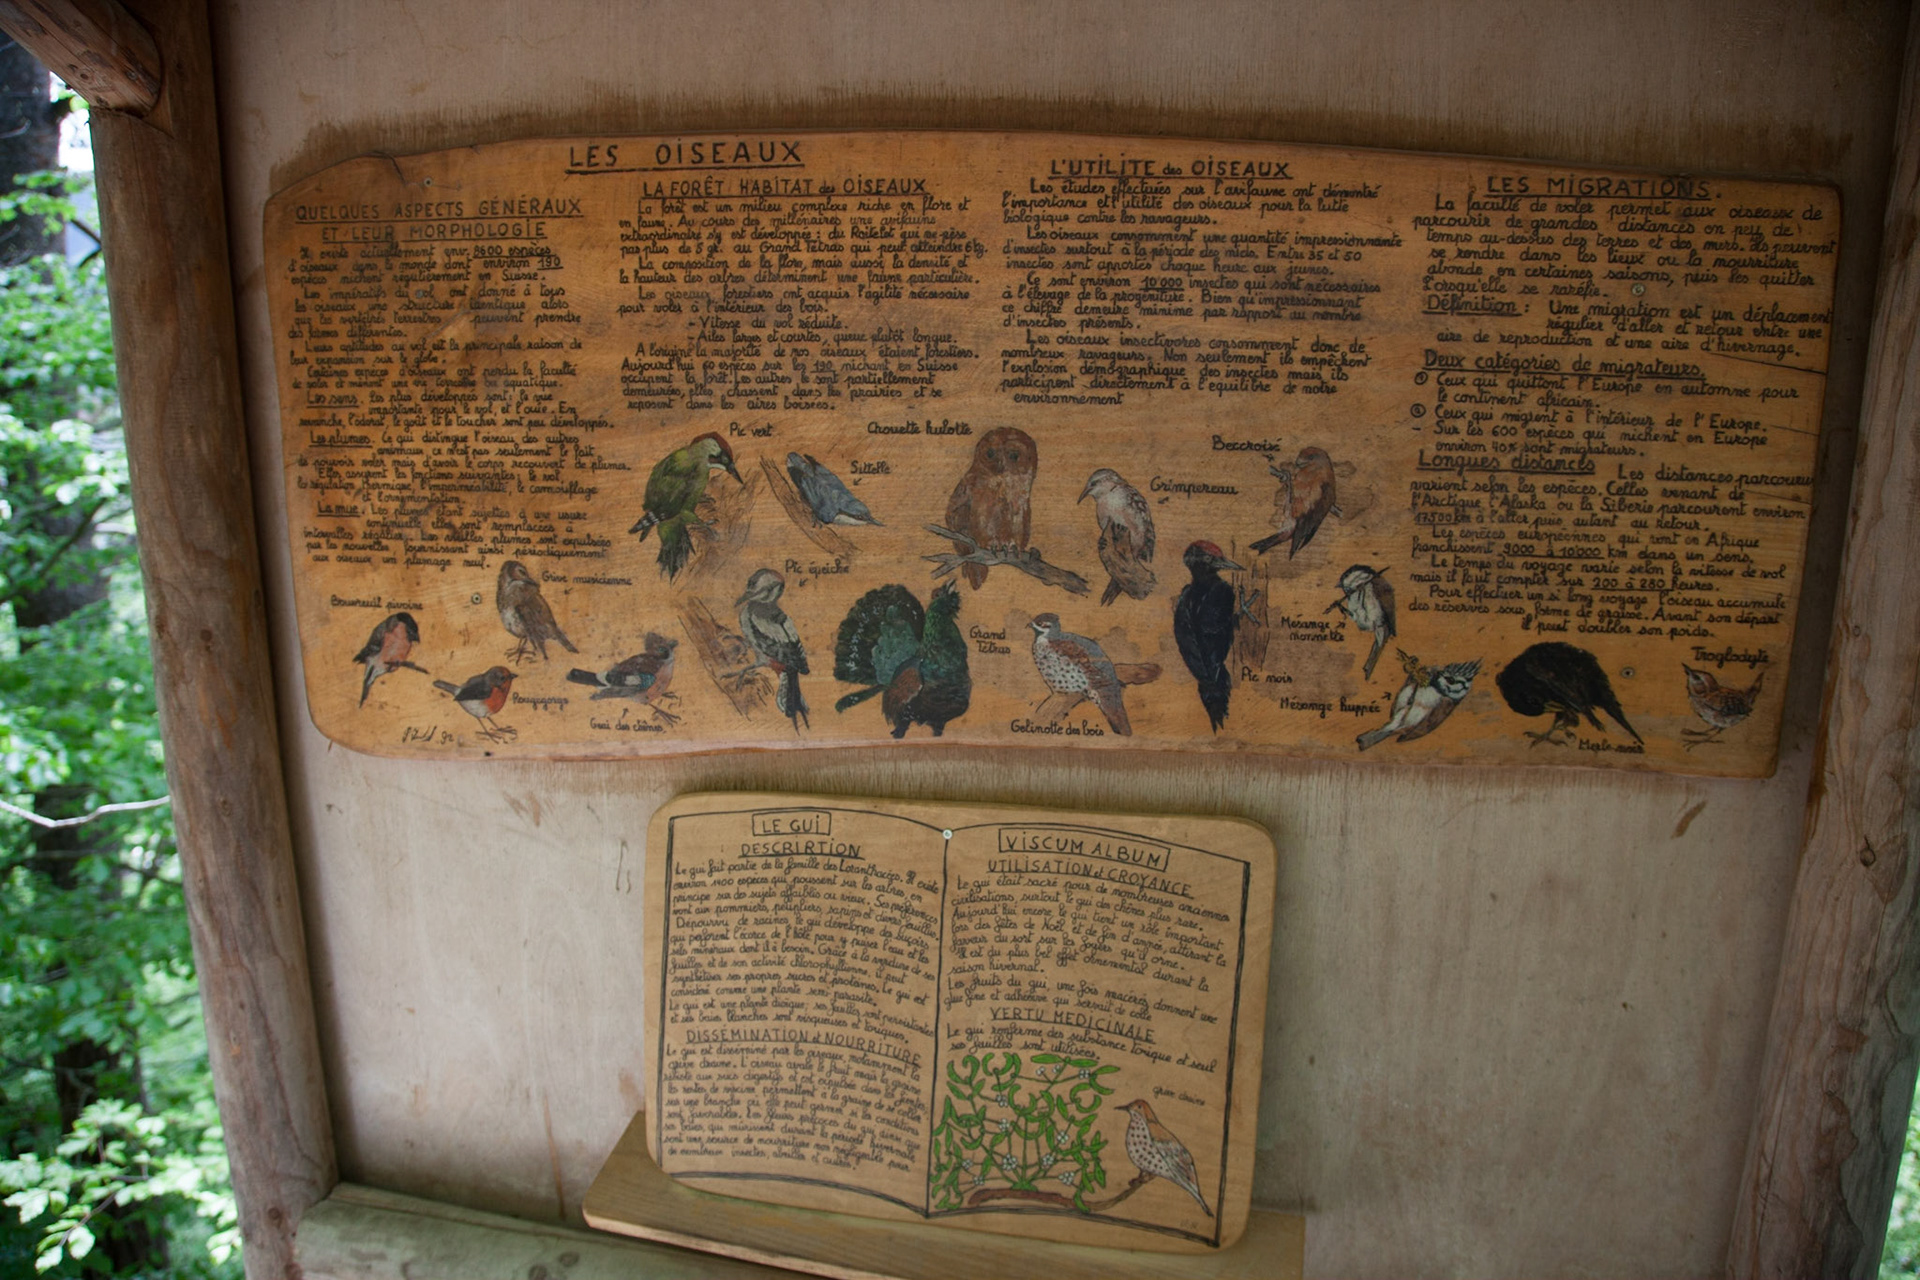 LES OISEAUX
QUELQUES ASPECTS GÉNÉRAUX
ET LEUR MORPHOLOGIE
Il existe actuellement env. 8600 espèces
d'oiseaux dans le monde dont environ 190
espèces nichent régulièrement en Suisse.
Les impératifs du vol ont donné à tous
les oiseaux une structure identique alors
que les vertébrés terrestres peuvent prendre
des formes différentes.
Leurs aptitudes au vol est la principale raison de
leur expansion sur le globe.
Certaines espèces d'oiseaux ont perdu la faculté
de voler et mènent une vie terrestre ou aquatique.
Les sens. Les plus développés sont: la vue
importante pour le vol, et l'ouïe. En
revanche, l'odorat, le goût et le toucher sont peu développés.
Les plumes. Ce qui distingue l'oiseau des autres
animaux ce n'est pas seulement le fait
de pouvoir voler mais d'avoir le corps recouvert de plumes.
Elles assurent les fonctions suivantes: le vol,
la régulation thermique, l'imperméabilité, le camouflage
et l'ornementation.
La mue. Les plumes étant sujettes à une usure
continuelle, elles sont remplacées à
intervalles régulier. Les vieilles plumes sont expulsées
par les nouvelles, fournissant ainsi périodiquement
aux oiseaux un plumage neuf.
LA FORÊT HABITAT des OISEAUX
La forêt est un milieu complexe riche en flore et
en faune. Au cours des millénaires une avifaune
extraordinaire s'y est développée: du Roitelet qui ne pèse
pas plus de 5 gr. au Grand Tétras qui peut atteindre 6 kg.
La composition de la flore, mais aussi la densité et
la hauteur des arbres déterminent une faune particulière.
Les oiseaux forestiers ont acquis l'agilité nécessaire
pour voler à l'intérieur des bois.
- Vitesse du vol réduite.
- Ailes larges et courtes, queue plutôt longue.
A l'origine la majorité de nos oiseaux étaient forestiers.
Aujourd'hui 60 espèces sur les 190 nichant en Suisse
occupent la forêt. Les autres le sont partiellement
demeurées, elles chassent dans les prairies et se
reposent dans les aires boisées.
L'UTILITE des OISEAUX
Les études effectuées sur l'avifaune ont démontré
l'importance et l'utilité des oiseaux pour la lutte
biologique contre les ravageurs.
Les oiseaux consomment une quantité impressionnante
d'insectes surtout à la période des nids. Entre 35 et 50
insectes sont apportés chaque heure aux jeunes.
Ce sont environ 10'000 insectes qui sont nécessaires
à l'élevage de la progéniture. Bien qu'impressionnant
ce chiffre demeure minime par rapport au nombre
d'insectes présents.
Les oiseaux insectivores consomment donc de
nombreux ravageurs. Non seulement ils empêchent
l'explosion démographique des insectes mais ils
participent directement à l'équilibre de notre
environnement
LES MIGRATIONS.
La faculté de voler permet aux oiseaux de
parcourir de grandes distances en peu de
temps au-dessus des terres et des mers. Ils peuvent
se rendre dans les lieux ou la nourriture
abonde en certaines saisons, puis les quitter
lorsqu'elle se raréfie.
Définition: Une migration est un déplacement
régulier d'aller et retour entre une
aire de reproduction et une aire d'hivernage.
Deux catégories de migrateurs.
① Ceux qui quittent l'Europe en automne pour
le continent africain.
② Ceux qui migrent à l'intérieur de l'Europe.
- Sur les 600 espèces qui nichent en Europe
environ 40% sont migrateurs.
Longues distances Les distances parcourues
varient selon les espèces. Celles venant de
l'Arctique, l'Alaska ou la Sibérie parcourent environ
17500 km à l'aller puis autant au retour.
Les espèces européennes qui vont en Afrique
franchissent 9000 à 10'000 km dans un sens.
Le temps du voyage varie selon la vitesse de vol
mais il faut compter sur 200 à 280 heures.
Pour effectuer un si long voyage l'oiseau accumule
des réserves sous forme de graisse. Avant son départ
il peut doubler son poids.
Pic vert
Chouette hulotte
Beccroisé
Sittelle
Grimpereau
Pic épeiche
Grive musicienne
Bouvreuil pivoine
Mésange nonnette
Grand Tétras
Troglodyte
Pic noir
Rougegorge
Mésange huppée
Geai des chênes
Gelinotte des bois
Merle noir
LE GUI
DESCRIRTION
Le gui fait partie de la famille des Loranthacées. Il existe
environ 1400 espèces qui poussent sur les arbres, en
principe sur des sujets affaiblis ou vieux. Ses préférences
vont aux pommiers, peupliers, sapins et divers feuillus.
Dépourvu de racines, le gui développe des suçoirs
qui perforent l'écorce de l'hôte pour y puiser l'eau et les
sels minéraux dont il à besoin. Grâce à la verdure de ses
feuilles et de son activité chlorophyllienne, il peut
synthétiser ses propres sucres et protéines. Le gui est
considéré comme une plante semi-parasite.
Le gui est une plante dioïque; ses feuilles sont persistantes
et ses baies blanches sont visqueuses et toxiques.
DISSÉMINATION et NOURRITURE
Le gui est disséminé par les oiseaux, notamment la
grive draine. L'oiseau avale le fruit mais la graine
résiste aux sucs digestifs et est expulsée dans les fientes.
les restes de viscine permettent à la graine de se coller
sur une branche où elle peut germer si les conditions
sont favorables. Les fleurs précoces du gui, ainsi que
ses baies, qui mûrissent durant la période hivernale
sont une source de nourriture non négligeable pour
de nombreux insectes, abeilles et autres.
VISCUM ALBUM
UTILISATION et CROYANCE
Le gui était sacré pour de nombreuses anciennes
civilisations, surtout le gui des chênes plus rare.
Aujourd'hui encore le gui tient un rôle important
lors des fêtes de Noël, et de fin d'année, attirant la
faveur du sort sur les foyers qu'il orne.
Il est du plus bel effet ornemental durant la
saison hivernal.
Les fruits du gui, une fois macérés donnent une
glue fine et adhésive qui servait de colle
VERTU MEDICINALE
Le gui renferme des substance toxique et seul
ses feuilles sont utilisées.
grive draine